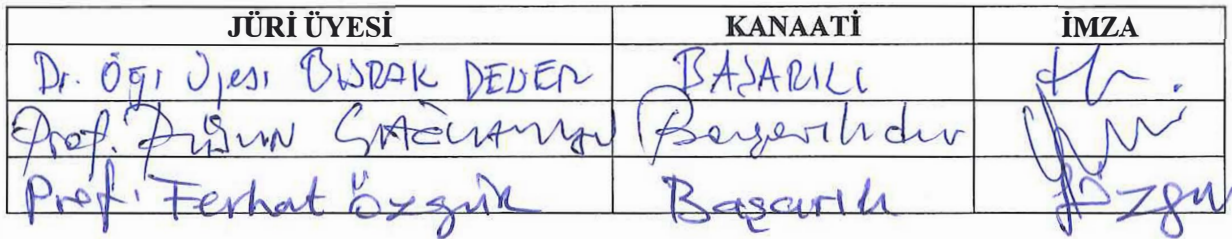 JÜRİ ÜYESİ KANAATİ İMZA
Dr. Öğr Üyesi BAŞARILI
Prof. Başarılıdır
Prof. Ferhat Özgür Başarılı Özgür